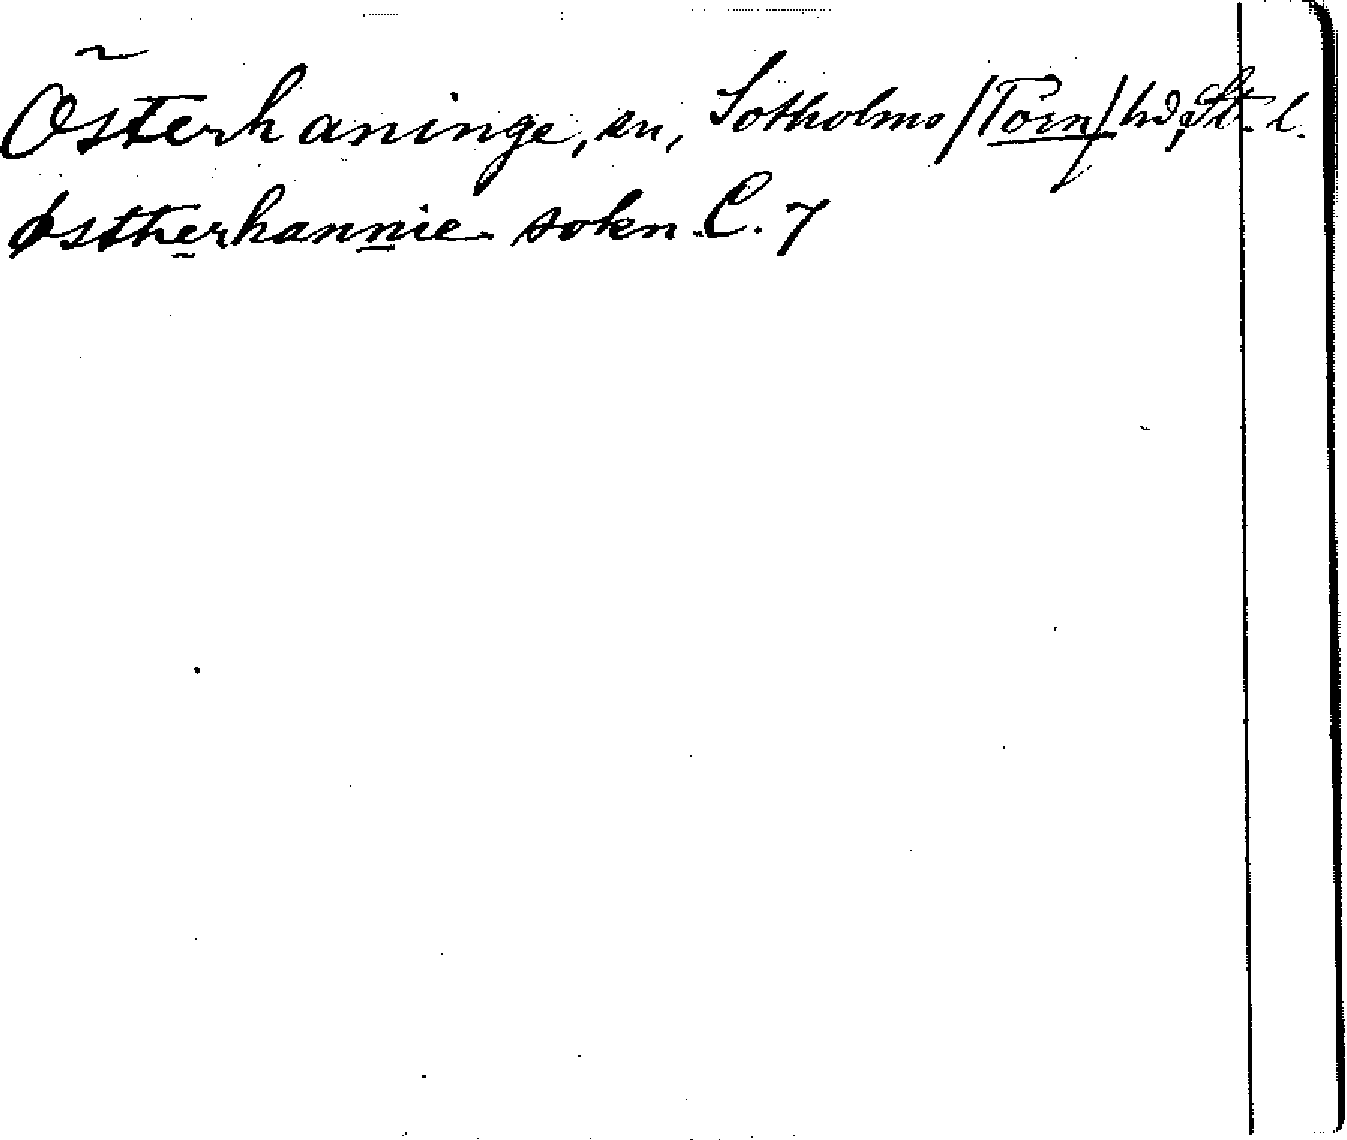 Österhaninge, sn, Sotholms /Törn/ hd, St. l.
østherhannie sokn C. 7